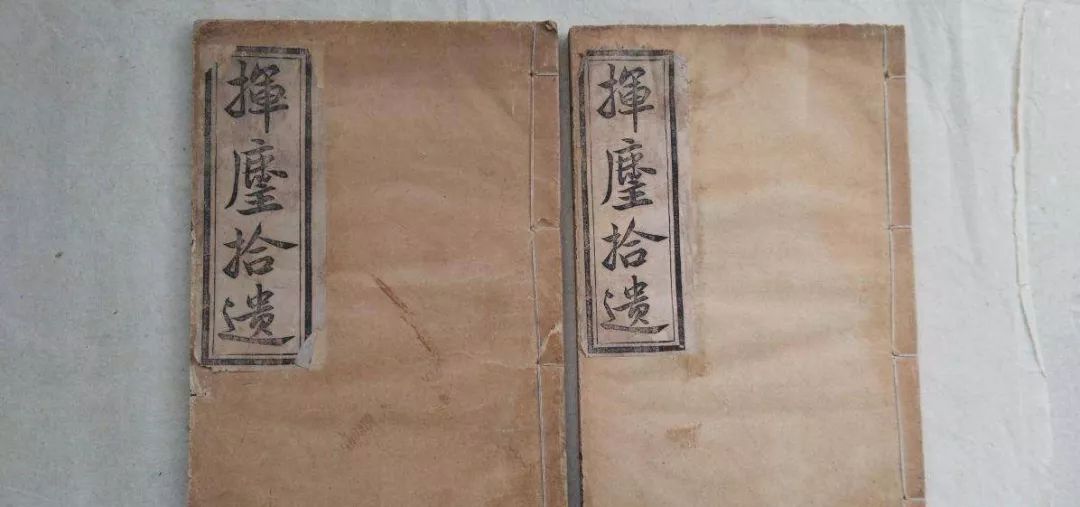 揮麈拾遺
揮麈拾遺